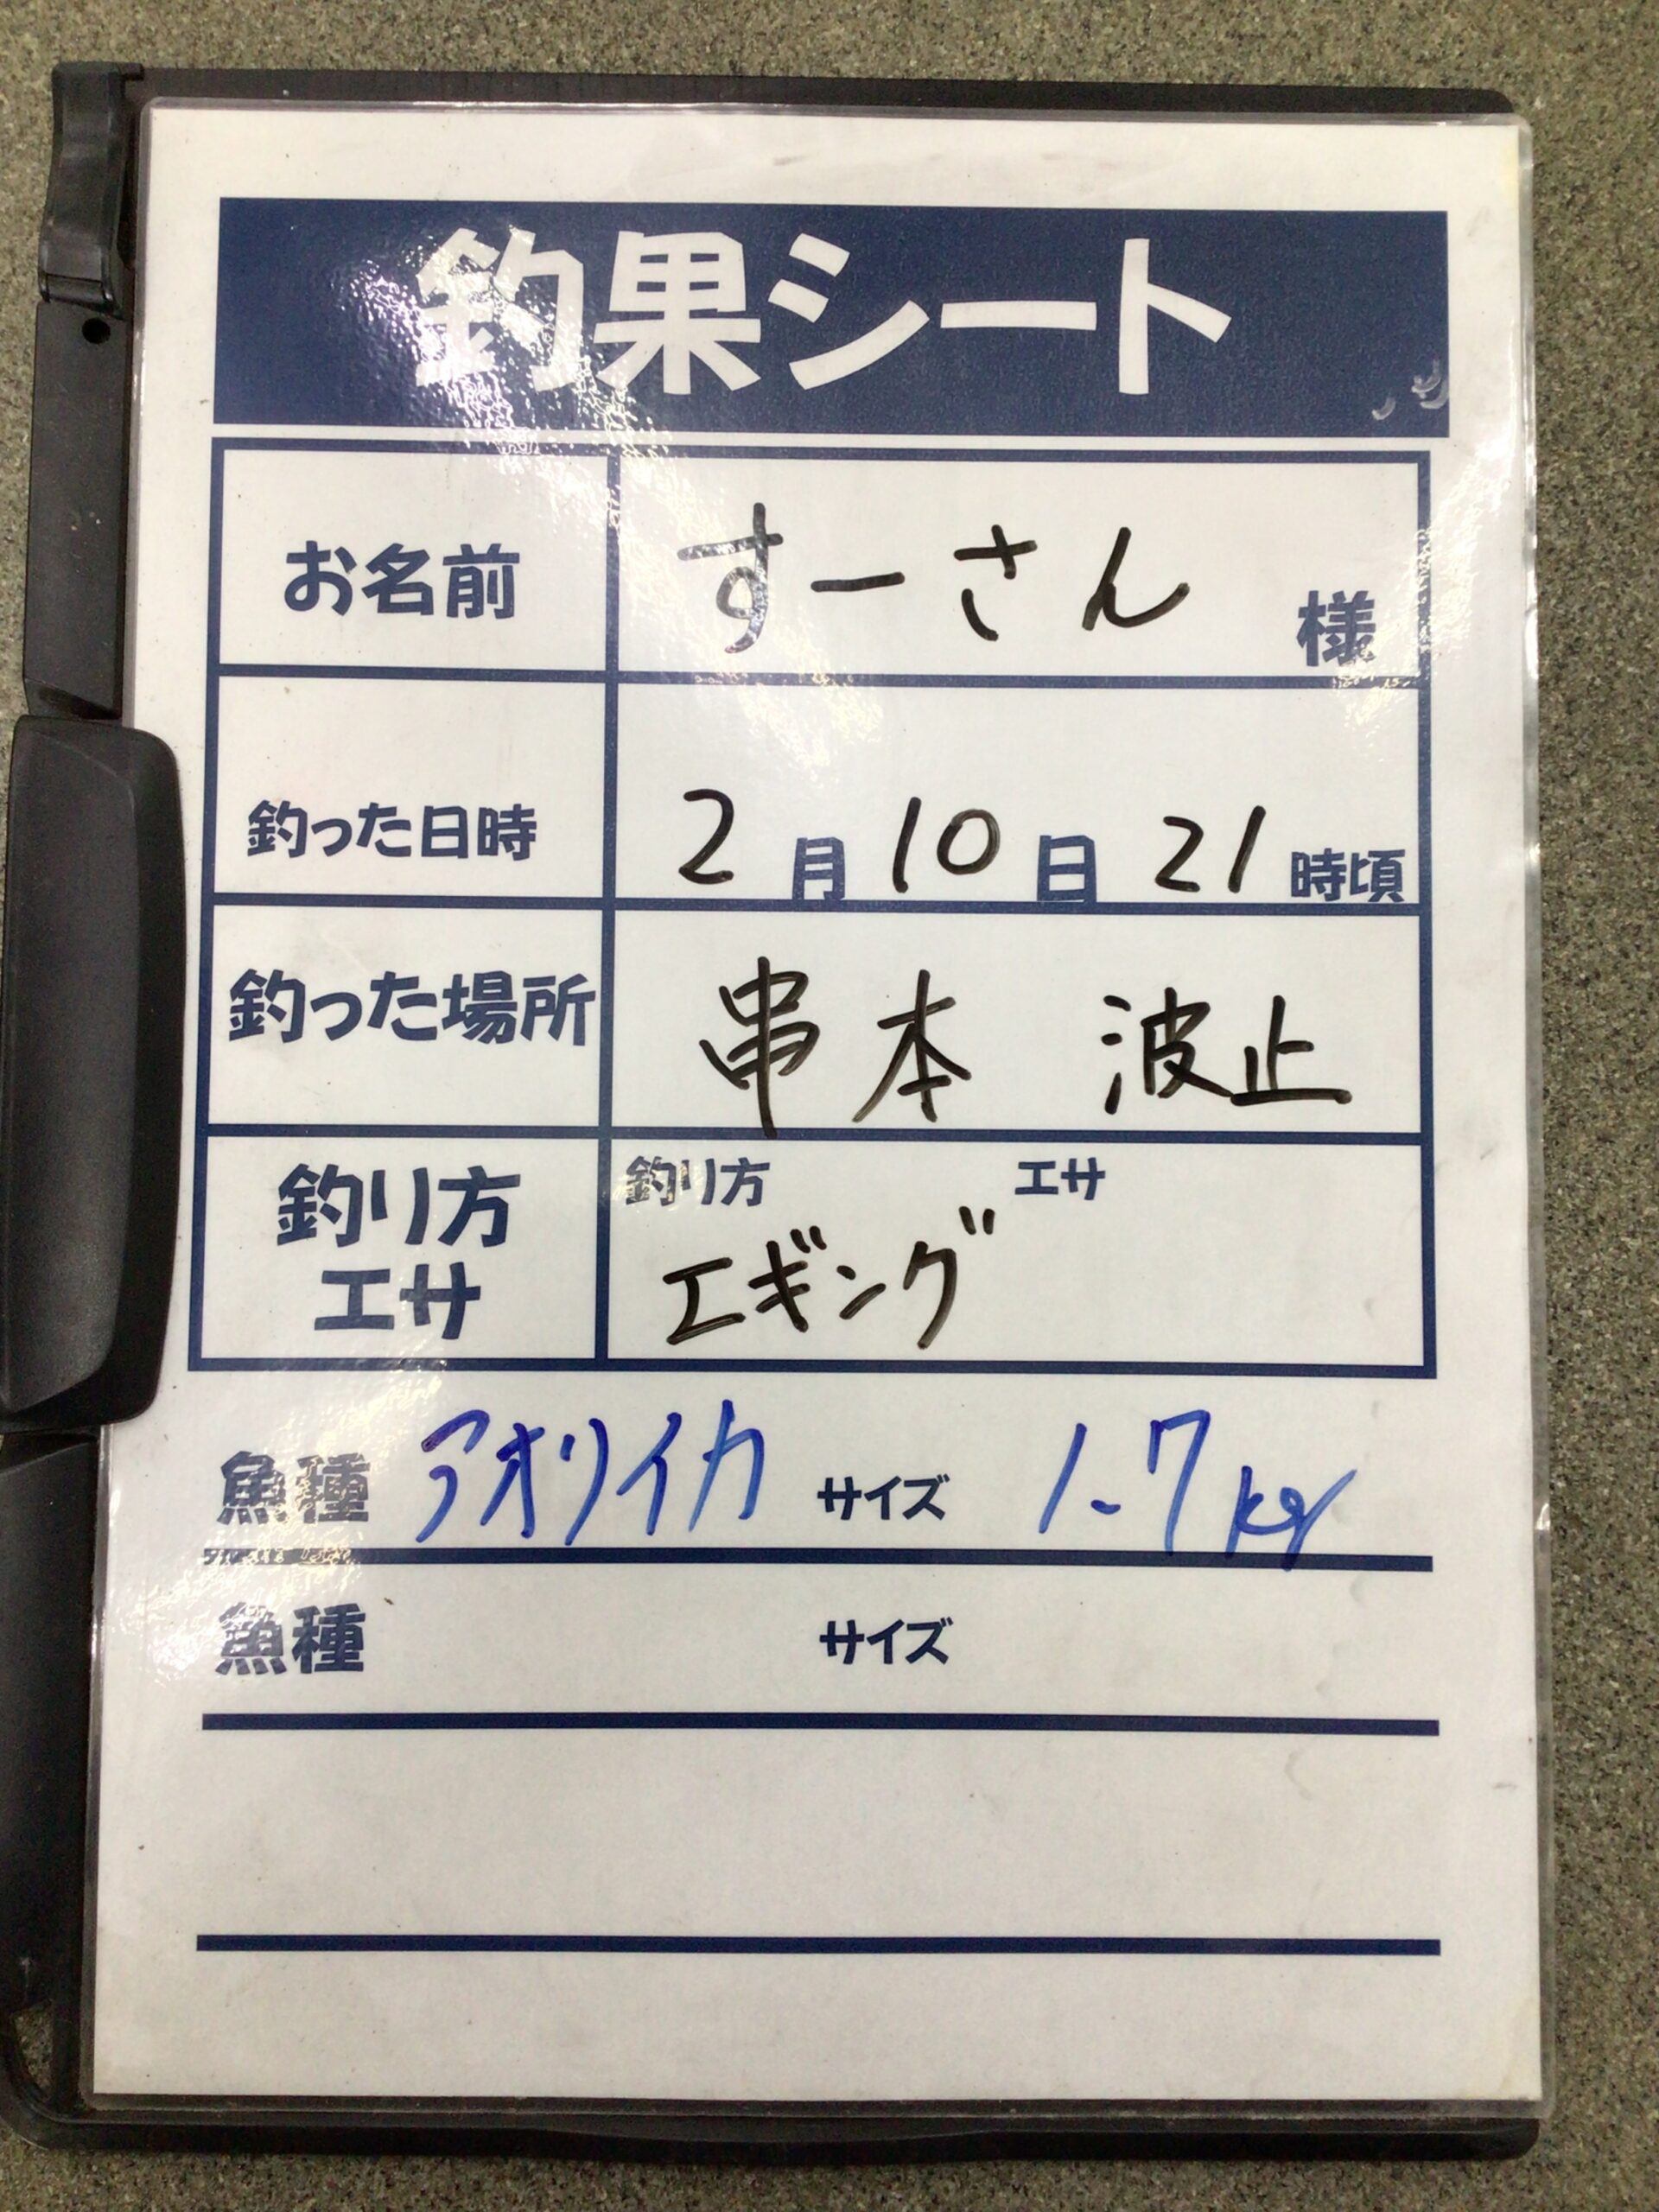 釣果シート
お名前 すーさん 様
釣った日時 2月10日21時頃
釣った場所 串本 波止
釣り方 エサ
釣り方
エサ
エギング
魚種 アオリイカ サイズ 1.7kg
魚種 サイズ